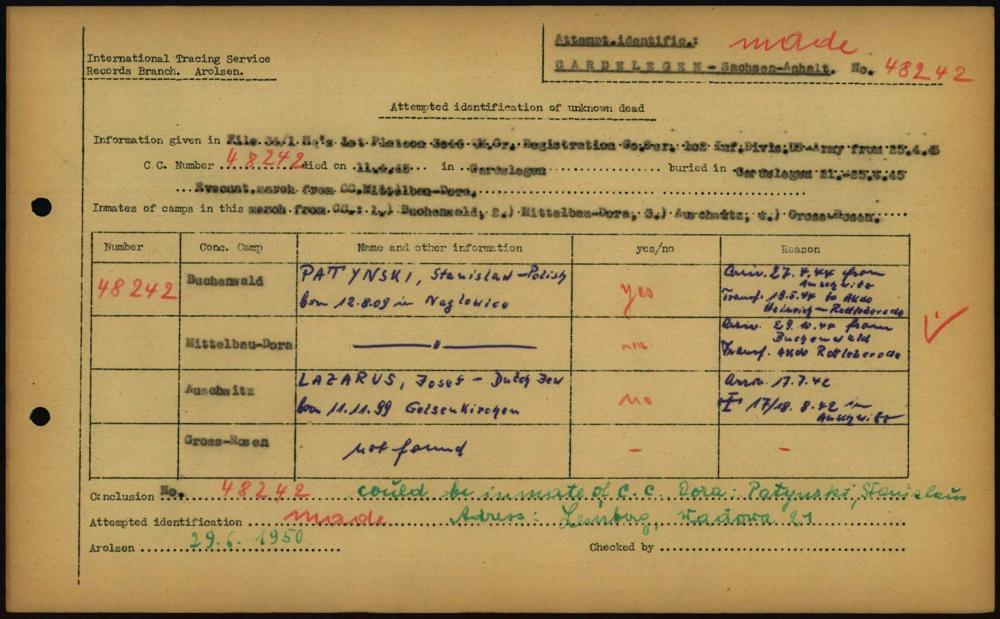 Attempt.identific.: made
International Tracing Service
Records Branch. Arolsen.
GARDELEGEN - Sachsen-Anhalt. No. 48242
Attempted identification of unknown dead
Information given in File 34/1 Hq's 1st Platoon 3046 Gr. Registration 102 Inf.Divis.US-Army from 25.4.45
C.C. Number 48242 died on 11.4.45 in Gardelegen buried in Gardelegen 21.-25.4.45
Evacuat.march from CC.Mittelbau-Dora.
Inmates of camps in this march from CC.: 1.) Buchenwald, 2.) Mittelbau-Dora, 3.) Auschwitz, 4.) Gross-Rosen.
Number Conc. Camp Name and other information yes/no Reason
48242 Buchenwald PATYNSKI, Stanislad - Polish born 12.8.09 in Naglowice yes Arriv. 27.4.44 from Auschwitz
Transf. 19.5.44 to Akdo Heinrich - Rottleberode
Mittelbau-Dora — " — Arriv. 29.10.44 from Buchenwald
Transf. Akdo Rottleberode
Auschwitz LAZARUS, Josef - Dutch Jew born 11.11.99 Gelsenkirchen no Arriv. 17.7.42
17/18.8.42 in Auschwitz
Gross-Rosen not found - -
Conclusion No. 48242 could be inmate of C.C. Dora: Patynski, Stanislaus
Attempted identification made Adress: Lemberg, Wadowa 21
Arolsen 29.6.1950 Checked by